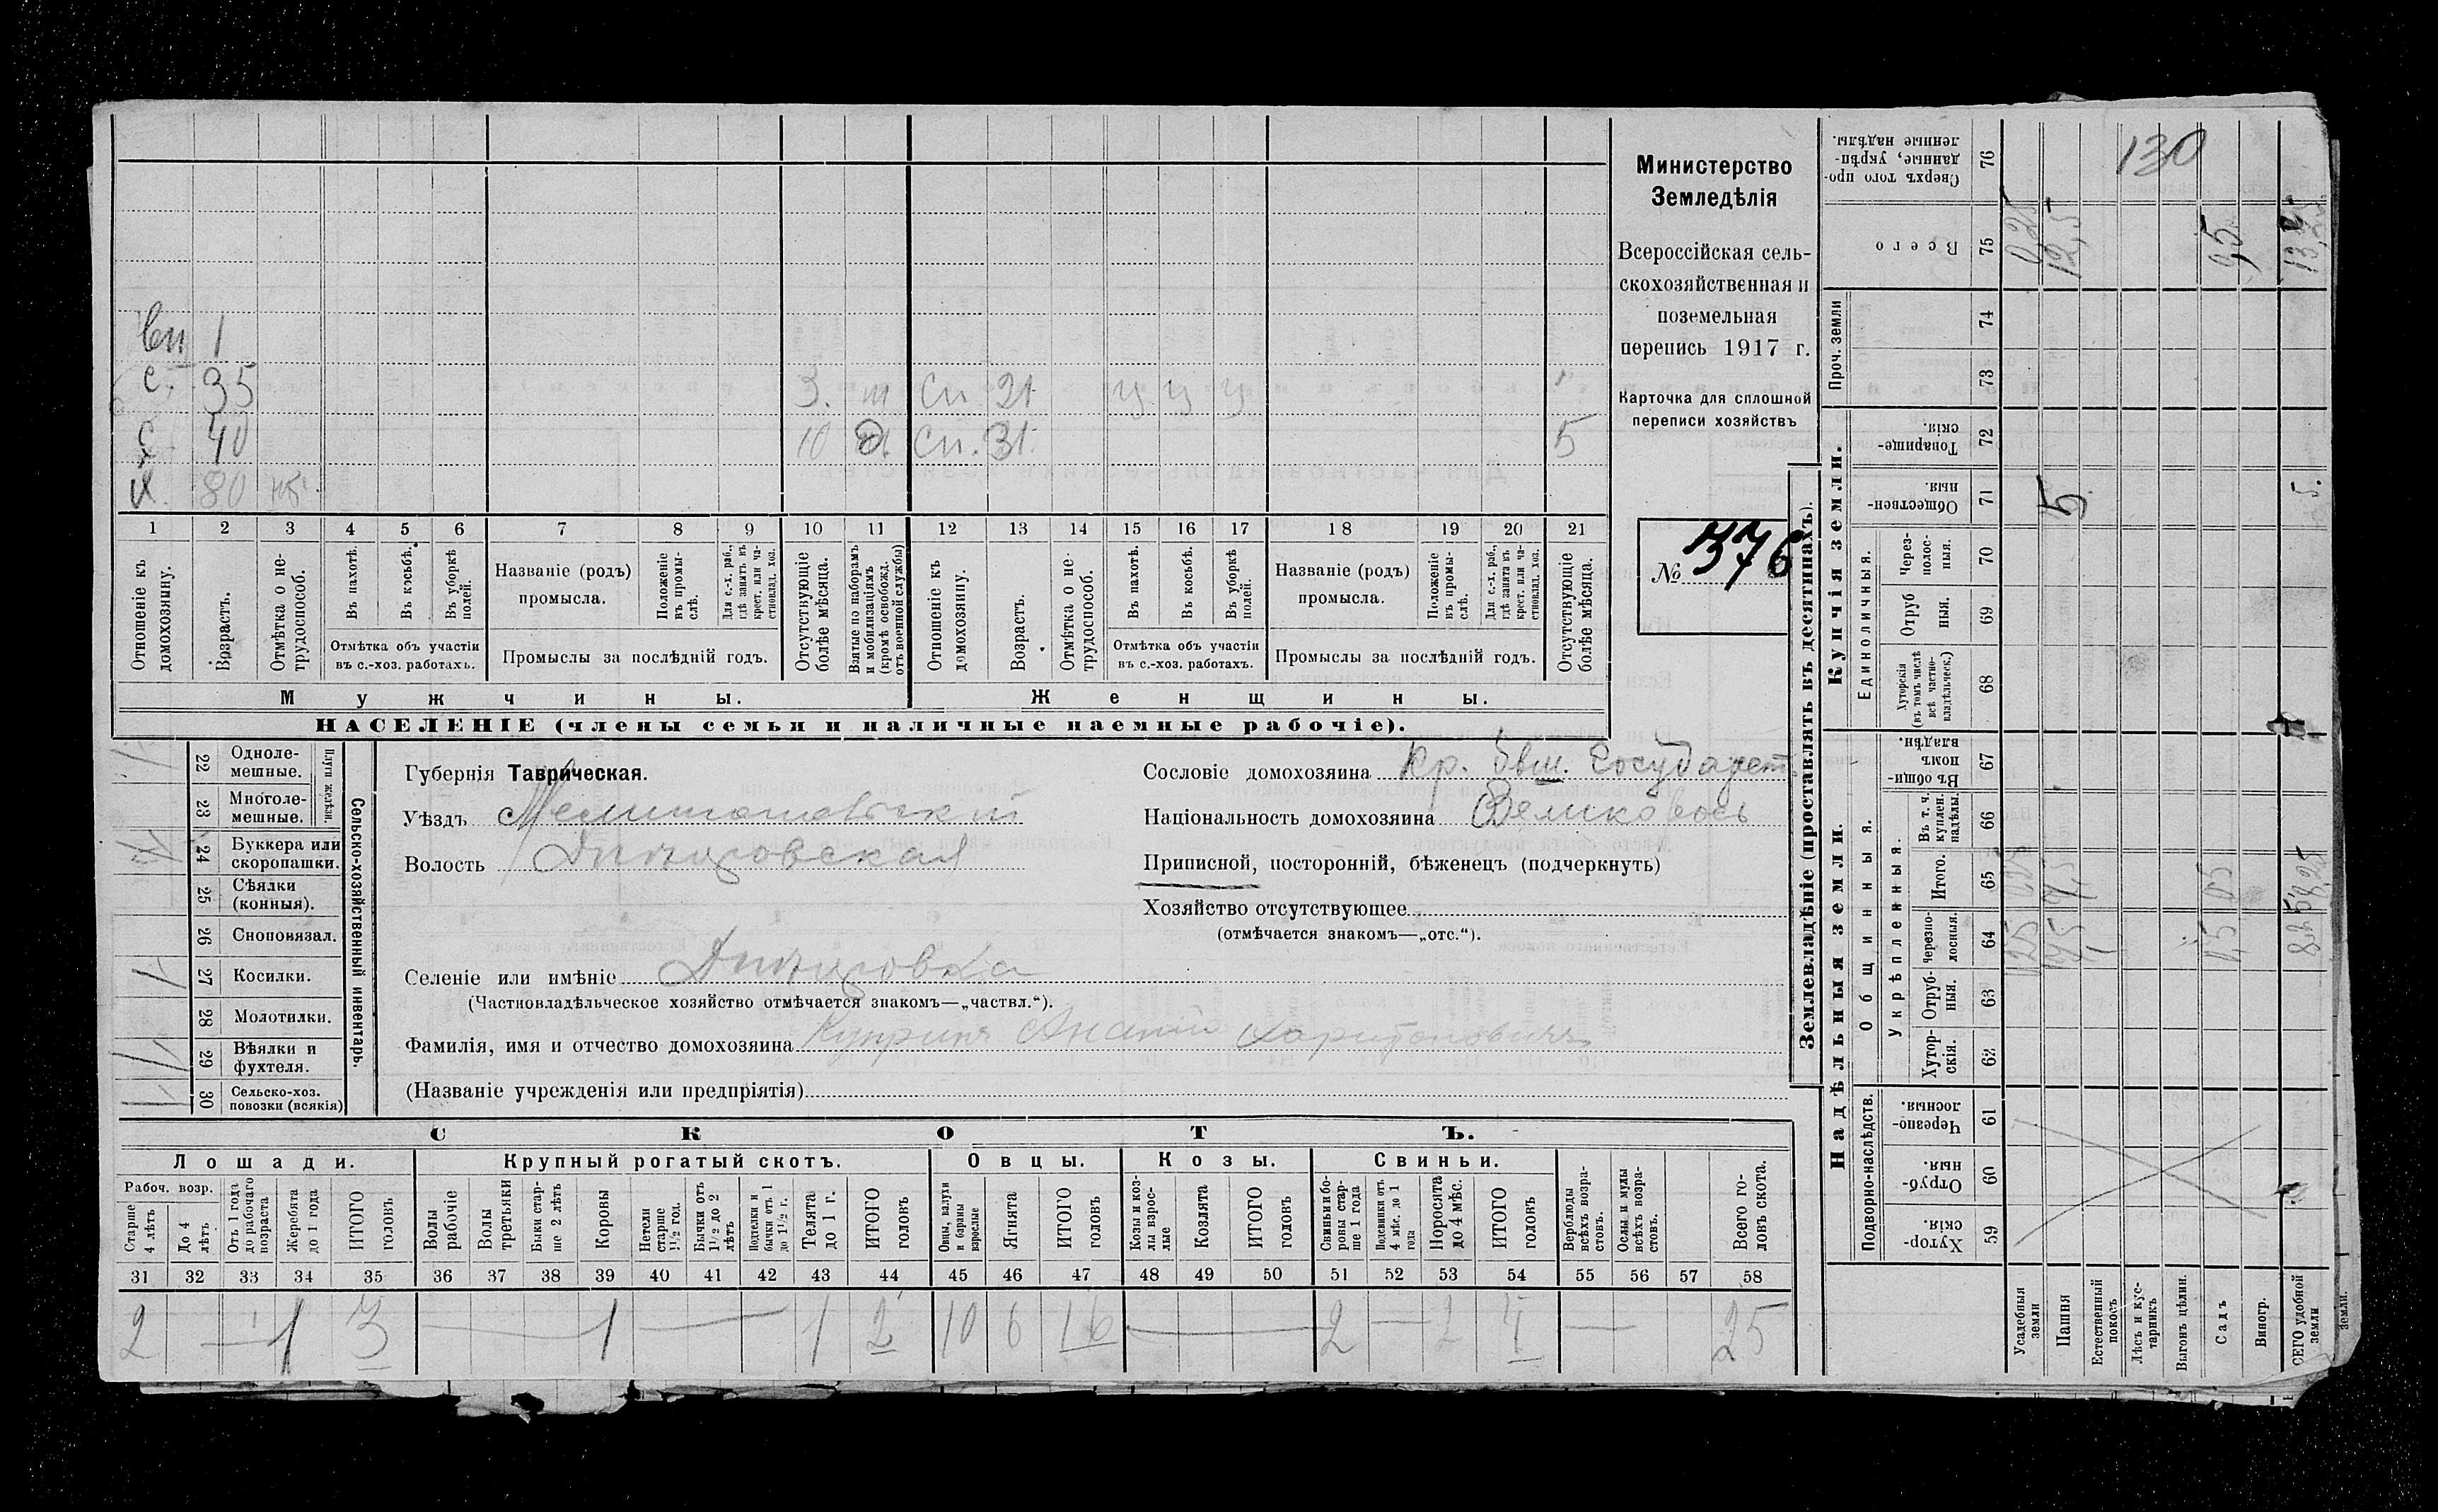 вн 1
с. 35 3. м сн 21 у у у
с 40 10 сн. 31 5
х. 80 нт
1 2 3 4 5 6 7 8 9 10 11 12 13 14 15 16 17 18 19 20 21
Отношеніе къ домохозяину.
Возрастъ.
Отмѣтка о не-трудоспособ.
Въ пахотѣ.
Въ косьбѣ.
Въ уборкѣ полей.
Отмѣтка объ участіи
въ с.-хоз. работахъ.
Названіе (родъ)
промысла.
Положеніе въ промы-слѣ.
Для с.-х. раб., гдѣ занятъ въ крест. или ча-стновлад. хоз.
Промыслы за послѣдній годъ.
Отсутствующіе болѣе мѣсяца.
Взятые по наборамъ и мобилизаціямъ (кромѣ освобожд. отъ военной службы)
Отношеніе къ домохозяину.
Возрастъ.
Отмѣтка о не-трудоспособ.
Въ пахотѣ.
Въ косьбѣ.
Въ уборкѣ полей.
Отмѣтка объ участіи
въ с.-хоз. работахъ.
Названіе (родъ)
промысла.
Положеніе въ промы-слѣ.
Для с.-х. раб., гдѣ занята въ крест. или ча-стновлад. хоз.
Промыслы за послѣдній годъ.
Отсутствующіе болѣе мѣсяца.
Мужчины. Женщины.
НАСЕЛЕНІЕ (члены семьи и наличные наемные рабочіе).
Министерство
Земледѣлія
Всероссійская сель-
скохозяйственная и
поземельная
перепись 1917 г.
Карточка для сплошной
переписи хозяйствъ
№ 376
Сельско-хозяйственный инвентарь.
Плуги желѣзн.
22 Одноле-мешные.
23 Многоле-мешные.
24 Буккера или скоропашки.
25 Сѣялки (конныя).
26 Сноповязал.
27 Косилки.
28 Молотилки.
29 Вѣялки и фухтеля.
30 Сельско-хоз. повозки (всякія)
Губернія Таврическая.
Уѣздъ Мелитопольскій
Волость
Селеніе или имѣніе
(Частновладѣльческое хозяйство отмѣчается знакомъ—„частвл.“).
Фамилія, имя и отчество домохозяина Купринъ Ананій Харитоновичъ
(Названіе учрежденія или предпріятія)
Сословіе домохозяина Кр. бывш. Государст
Національность домохозяина Великоросъ
Приписной, посторонній, бѣженецъ (подчеркнуть)
Хозяйство отсутствующее
(отмѣчается знакомъ—„отс.“).
СКОТЪ.
Лошади. Крупный рогатый скотъ. Овцы. Козы. Свиньи.
Рабоч. возр.
Старше 4 лѣтъ
До 4 лѣтъ
Отъ 1 года до рабочаго возраста
Жеребята до 1 года
ИТОГО головъ
Волы рабочіе
Волы третьяки
Быки стар-ше 2 лѣтъ
Коровы
Нетели старше 1½ год.
Бычки отъ 1½ до 2 лѣтъ
Подтелки и бычки отъ 1 до 1½ г.
Телята до 1 г.
ИТОГО головъ
Овцы, валухи и бараны взрослые
Ягнята
ИТОГО головъ
Козы и коз-лы взрос-лые
Козлята
ИТОГО головъ
Свиньи и бо-ровы стар-ше 1 года
Подсвинки отъ 4 мѣс. до 1 года
Поросята до 4 мѣс.
ИТОГО головъ
Верблюды всѣхъ возра-стовъ.
Ослы и мулы всѣхъ возра-стовъ.
Всего го-ловъ скота.
31 32 33 34 35 36 37 38 39 40 41 42 43 44 45 46 47 48 49 50 51 52 53 54 55 56 57 58
2 — 1 3 — 1 — 1 2 10 6 16 — 2 — 2 4 — 25
Землевладѣніе (проставлять въ десятинахъ).
Купчія земли.
Надѣльныя земли.
Сверхъ того про-данные, укрѣп-ленные надѣлы. 76
Всего 75
Проч. земли 74 73
Товарище-скія. 72
Обществен-ныя. 71
Единоличныя.
Через-полос-ныя. 70
Отруб-ныя. 69
Хуторскія (въ томъ числѣ всѣ частно-владѣльческ.) 68
Общинныя.
Въ общин-номъ владѣн. 67
Укрѣпленныя.
Въ т. ч. куплен. надѣлы. 66
Итого. 65
Черезпо-лосныя. 64
Отруб-ныя. 63
Хутор-скія. 62
Подворно-наслѣдств.
Черезпо-лосныя. 61
Отруб-ныя. 60
Хутор-скія. 59
Усадебныя земли
Пашня
Естественный покосъ
Лѣсъ и кус-тарникъ
Выгонъ цѣлин.
Садъ
Виногр.
СЕГО удобной земли
земли.
130
0,25
12,5
5